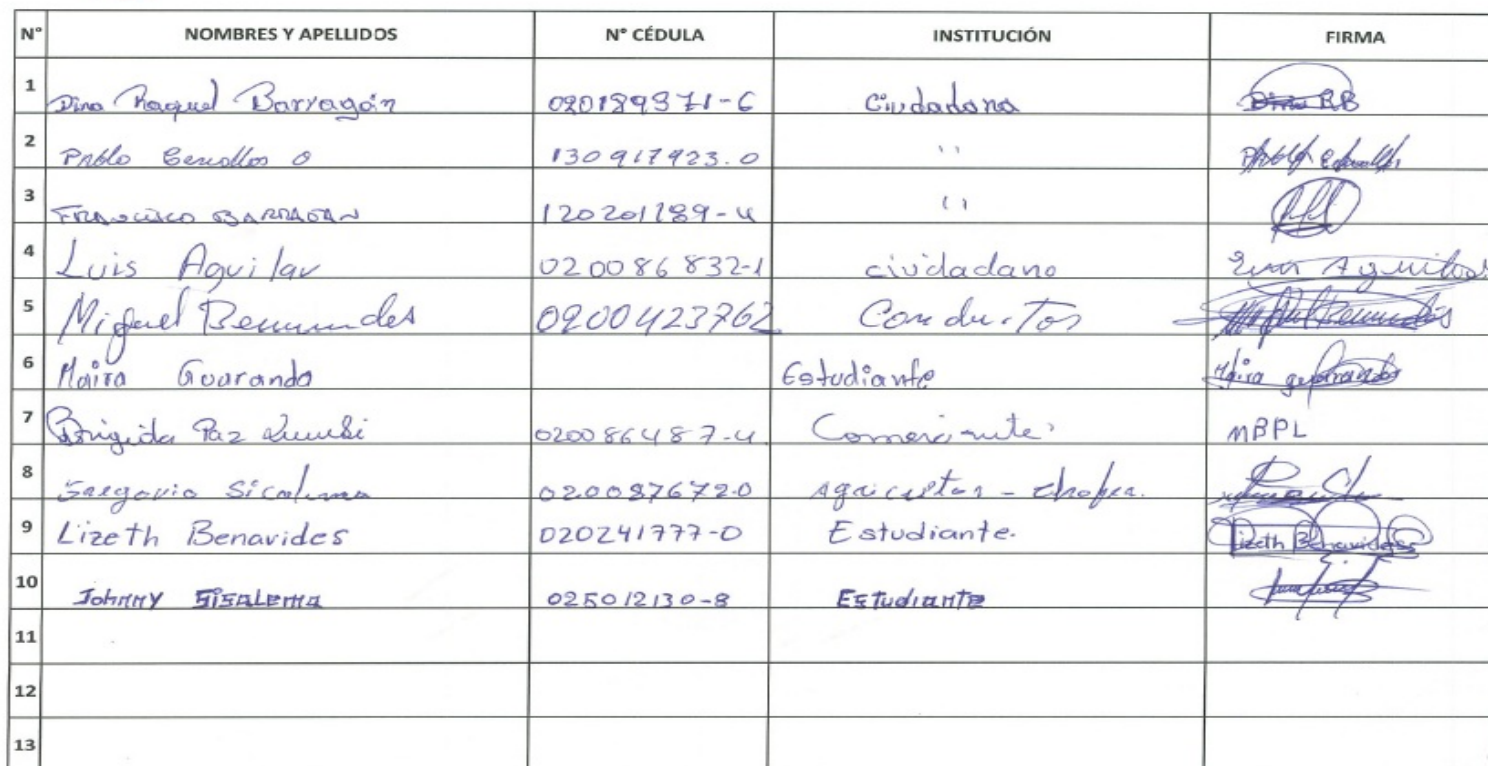 N° NOMBRES Y APELLIDOS N° CÉDULA INSTITUCIÓN FIRMA
1 Dina Raquel Barragán 020189371-6 Ciudadana Dina RB
2 Pablo 130917923.0 ''
3 Francisco BARRAGAN 120201289-4 ''
4 Luis Aguilar 020086832-1 ciudadano Luis Aguilar
5 Miguel 0200423762 Conductor
6 Maira Guarando Estudiante Maira guarando
7 Brigida Paz 020086487-4 Comerciante MBPL
8 020087672-0 Agricultor - chofer.
9 Lizeth Benavides 020241777-0 Estudiante. Lizeth Benavides
10 Johnny Sisalema 025012130-8 Estudiante
11
12
13